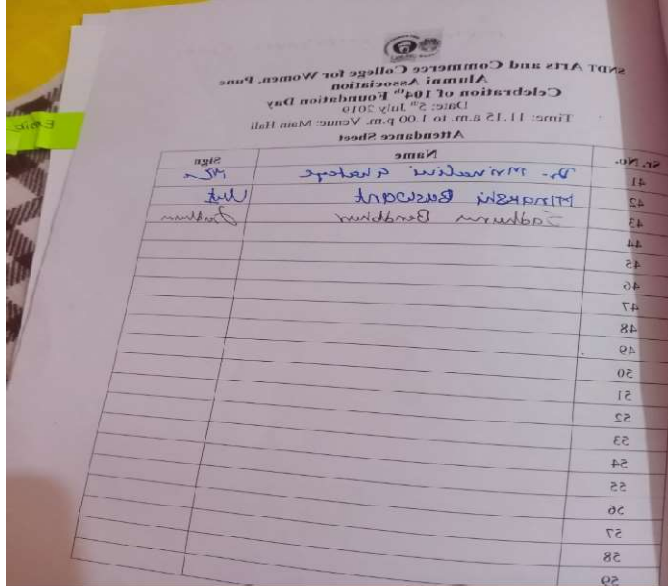 SNDT Arts and Commerce College for Women, Pune
Alumni Association
Celebration of 104th Foundation Day
Date: 5th July 2019
Time: 11.15 a.m. to 1.00 p.m. Venue: Main Hall
Attendance Sheet
Sr.No. Name Sign
41 Dr. Mrinalini
42 Minakshi Baswant
43
44
45
46
47
48
49
50
51
52
53
54
55
56
57
58
59